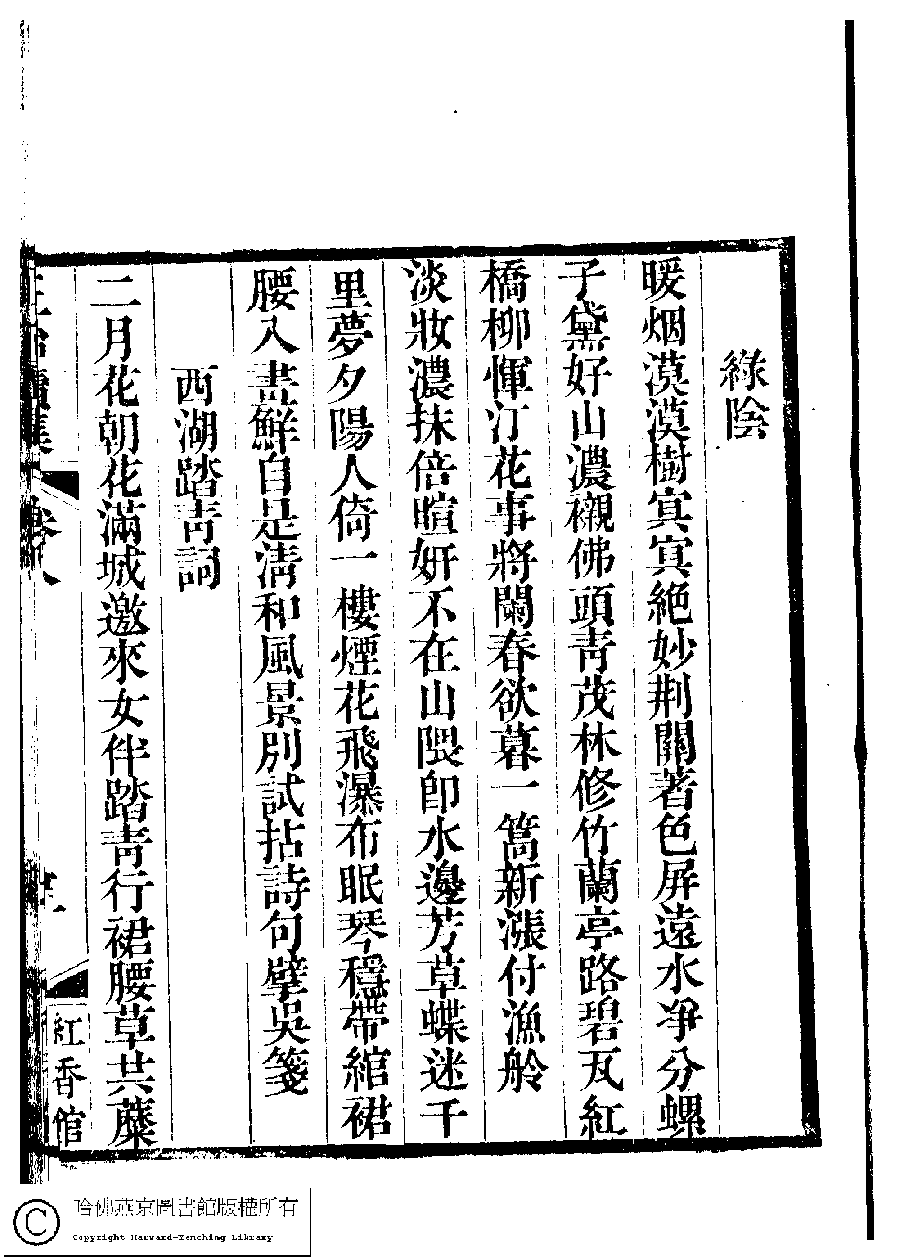 綠陰
暖烟漠漠樹冥冥絶妙荆關著色屏遠水凈分螺
子黛好山濃襯佛頭靑茂林修竹蘭亭路碧瓦紅
橋柳惲汀花事將闌春欲暮一篙新漲付漁舲
淡妝濃抹倍暄妍不在山隈卽水邊芳草蝶迷千
里夢夕陽人倚一樓煙花飛瀑布眠琴穩帶綰裙
腰入畫鮮自是淸和風景別試拈詩句擘吳箋
西湖踏靑詞
二月花朝花滿城邀來女伴踏靑行裙腰草共蘼
卷八
紅香館
哈佛燕京圖書館版權所有
Copyright Harvard-Yenching Library